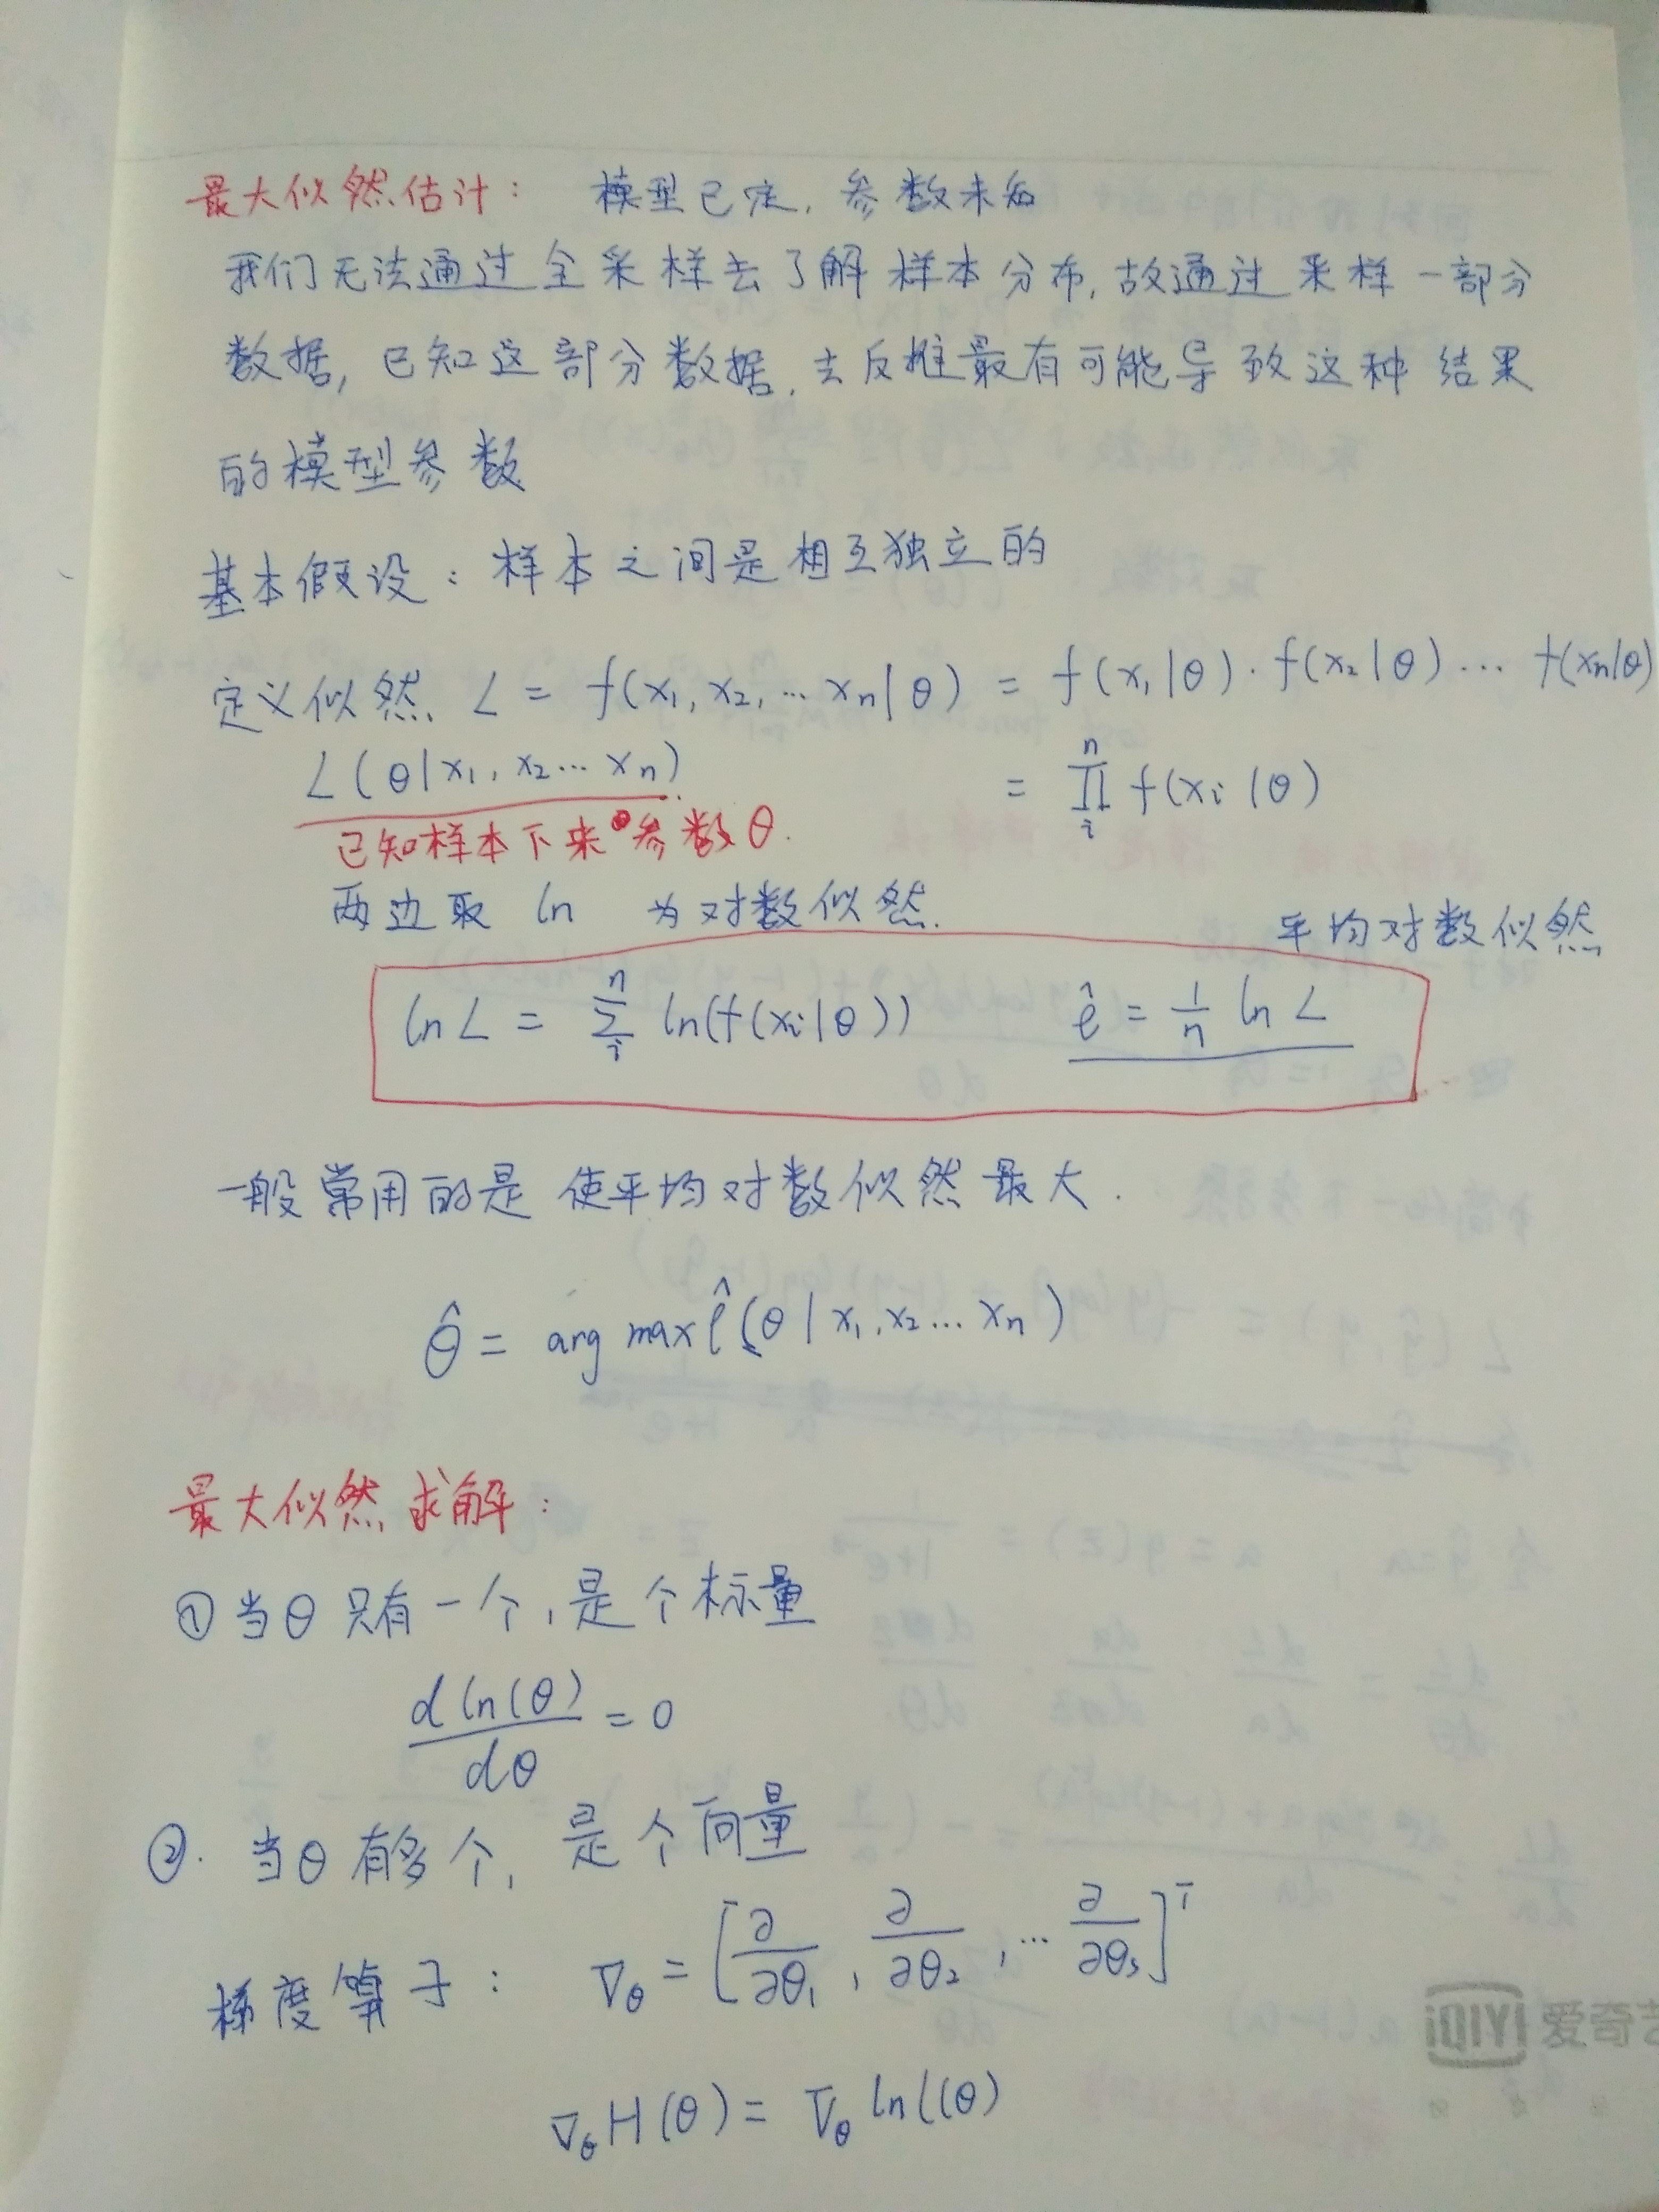 最大似然估计: 模型已定, 参数未知
我们无法通过全采样去了解样本分布, 故通过采样一部分
数据, 已知这部分数据, 去反推最有可能导致这种结果
的模型参数
基本假设: 样本之间是相互独立的
定义似然 L = f(x₁, x₂, … xₙ|θ) = f(x₁|θ)·f(x₂|θ)… f(xₙ|θ)
L(θ|x₁, x₂… xₙ) = ∏ᵢⁿ f(xᵢ|θ)
已知样本下来参数θ.
两边取 ln 为对数似然. 平均对数似然
lnL = ∑ᵢⁿ ln(f(xᵢ|θ)) ê = 1/n lnL
一般常用的是使平均对数似然最大.
θ̂ = arg max l̂(θ|x₁, x₂… xₙ)
最大似然求解:
① 当θ只有一个, 是个标量
d ln(θ)/dθ = 0
②. 当θ有多个, 是个向量
梯度算子: ∇θ = [∂/∂θ₁, ∂/∂θ₂, … ∂/∂θₛ]ᵀ
∇θ H(θ) = ∇θ ln l(θ)
iQIYI 爱奇艺